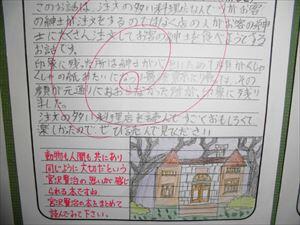 このお話は、注文の多い料理店という
の紳士が注文をするのではなく店の人がお客の紳
士にたくさん注文してお客の紳士を食べようとする
お話です。
印象に残った所は紳士が
しゃの紙みたいになり
顔が元通りにおおらなかった所が、印象に残り
ました。
注文の多い料理店を読んですごくおもしろくて
楽しかったので、ぜひ読んで見てください
動物も人間も共にあり
同じように大切だという
宮沢賢治の思いが感じ
られる本ですね
宮沢賢治の本をまとめて
読んでみて下さい。